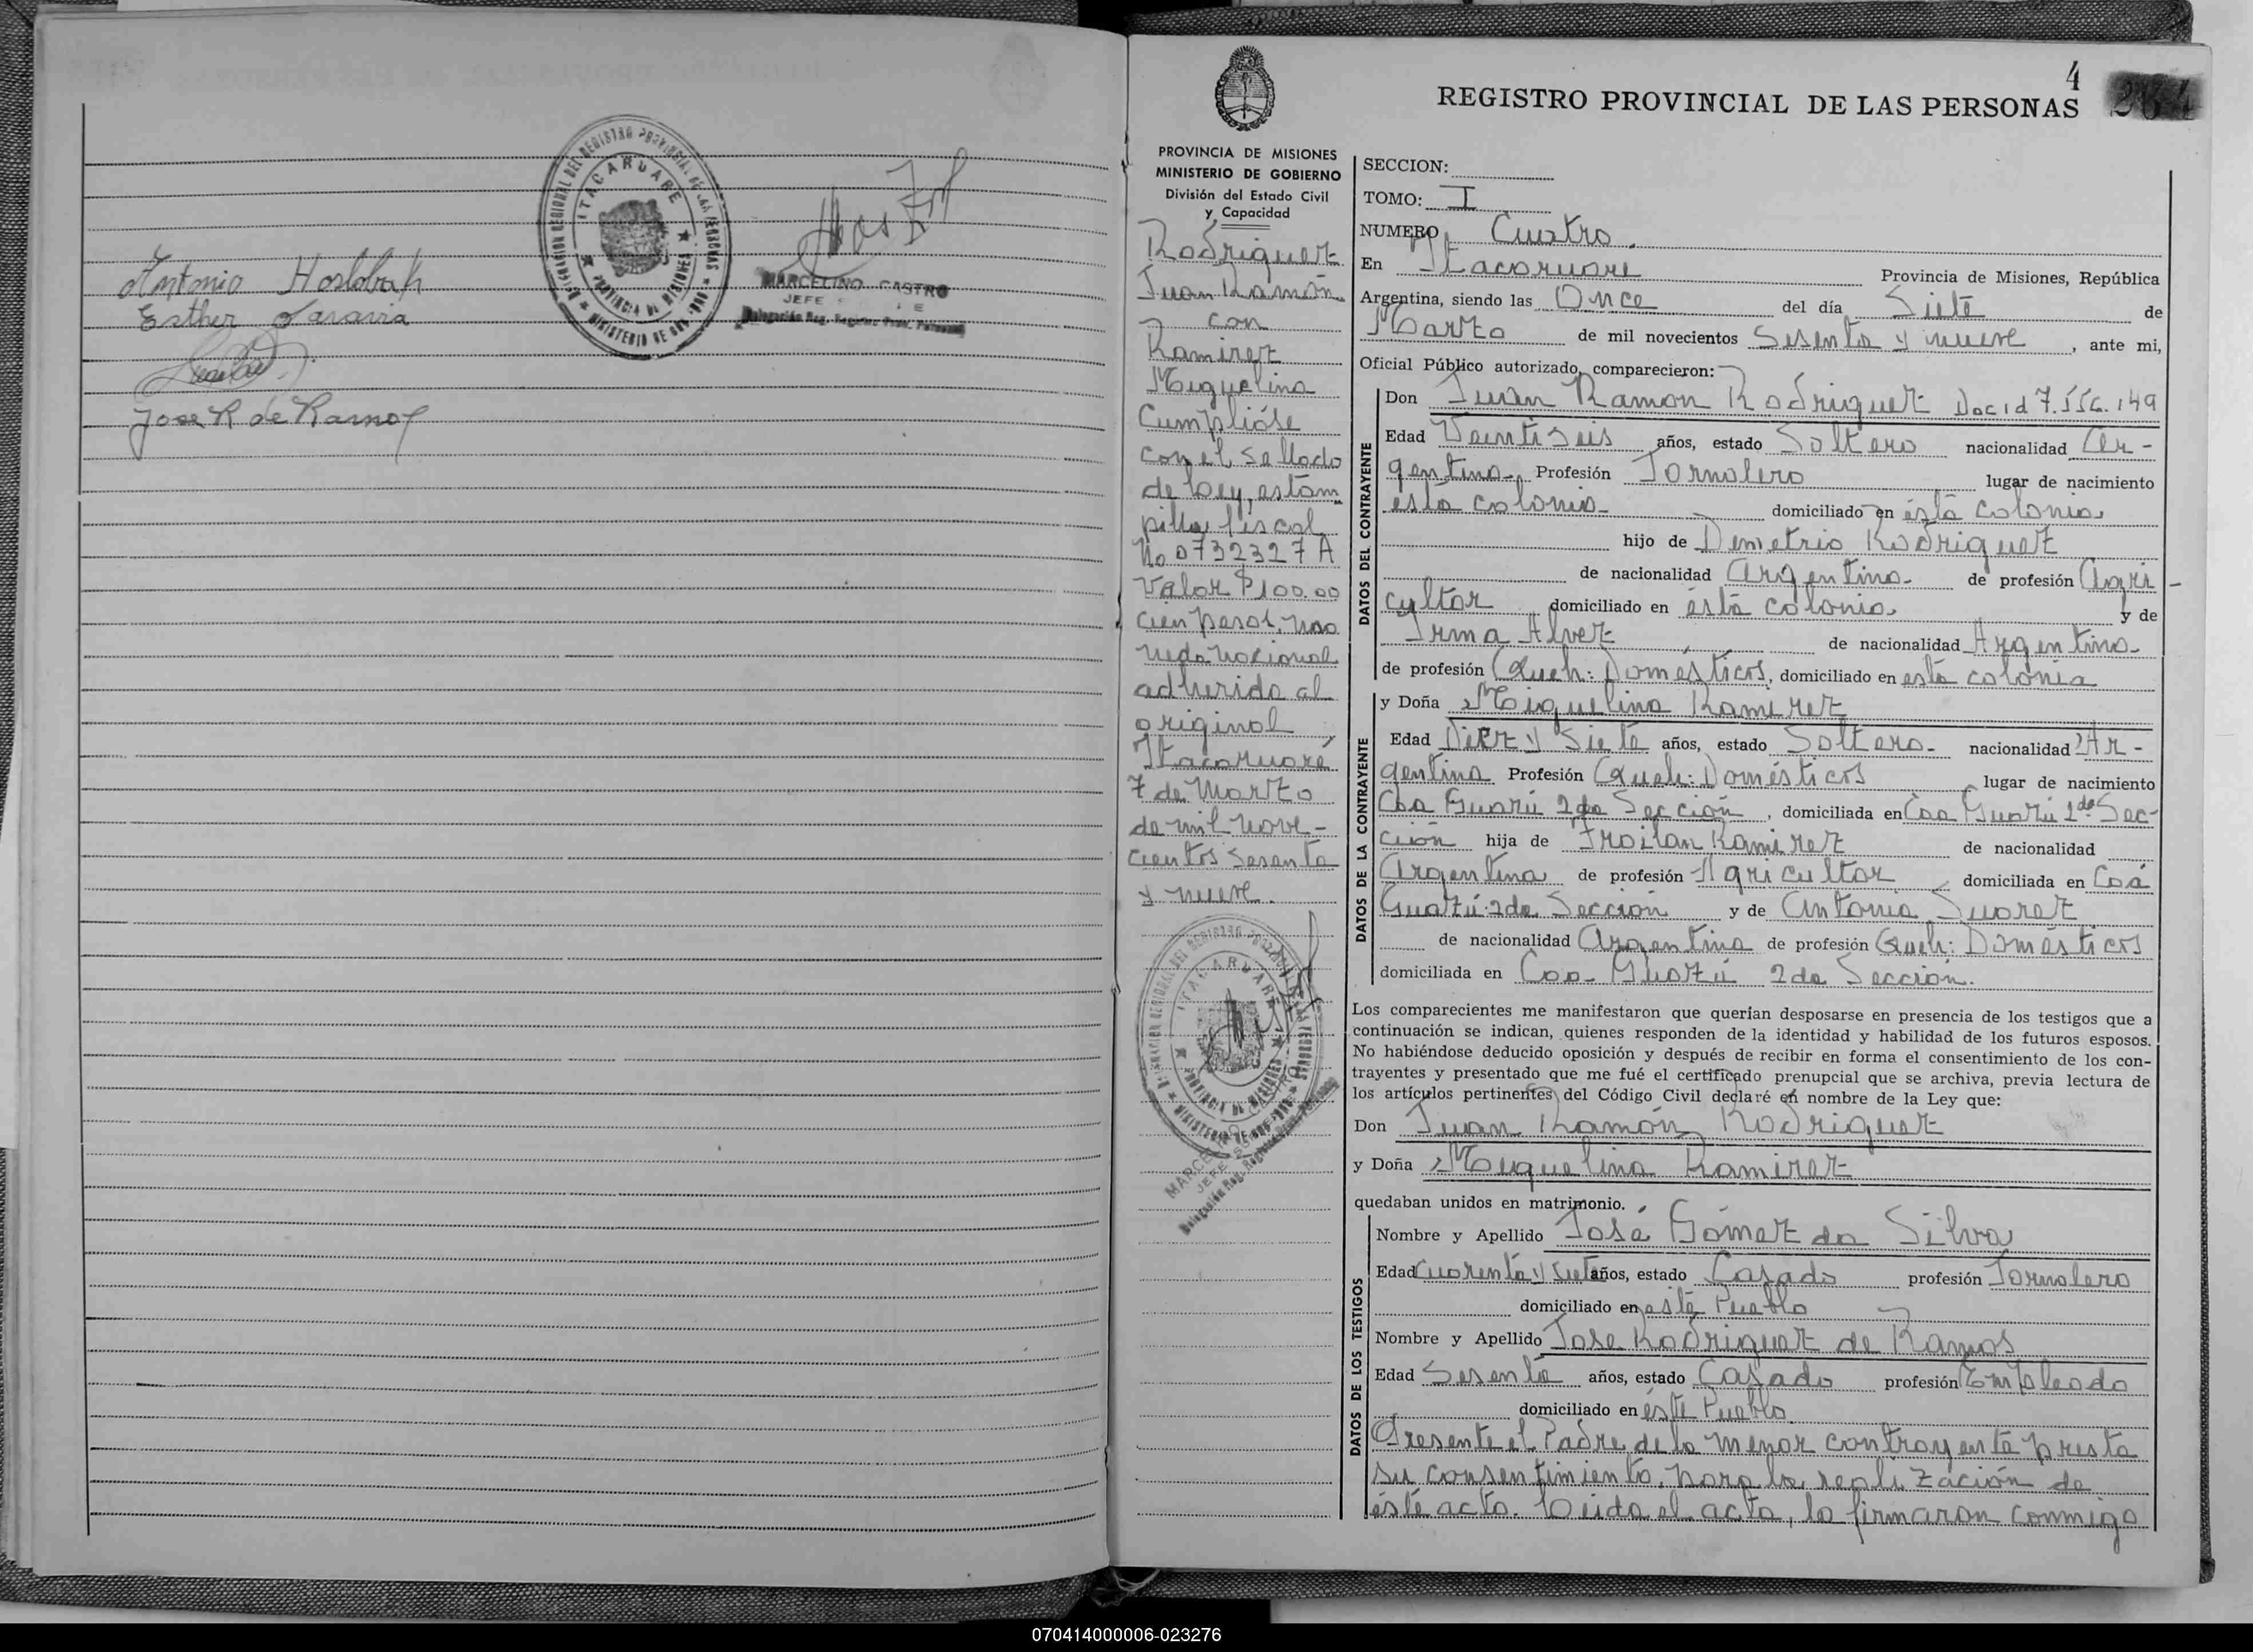 Antonio Hoslobah
Esther Saraiva
Jose R de Ramos
DELEGACION REGIONAL DEL REGISTRO PROVINCIAL DE LAS PERSONAS
ITACARUARE
PROVINCIA DE MISIONES
MINISTERIO DE GOBIERNO
MARCELINO CASTRO
JEFE
Delegación Reg. Registro Prov. Personas
4
264
REGISTRO PROVINCIAL DE LAS PERSONAS
PROVINCIA DE MISIONES
MINISTERIO DE GOBIERNO
División del Estado Civil
y Capacidad
Rodriguez
Juan Ramón
con
Ramirez
Miguelina
Cumplióse
con el Sellado
de Ley, estam
pilla fiscal
No 0732327 A
Valor $ 100.00
cien pesos mo
neda nacional
adherida al
original
Itacaruaré
7 de Marzo
de mil nove-
cientos sesenta
y nueve.
ITACARUARE
PROVINCIA DE MISIONES
MARCELINO CASTRO
SECCION:
TOMO: I
NUMERO Cuatro.
En Itacaruare Provincia de Misiones, República
Argentina, siendo las Once del día Siete de
Marzo de mil novecientos Sesenta y nueve, ante mi,
Oficial Público autorizado, comparecieron:
DATOS DEL CONTRAYENTE
Don Juan Ramon Rodriguez Doc id 7.556.149
Edad Veinti Seis años, estado Soltero nacionalidad Ar-
gentina. Profesión Jornalero lugar de nacimiento
esta colonia- domiciliado en ésta colonia
hijo de Demetrio Rodriguez
de nacionalidad Argentina- de profesión Agri-
cultor domiciliado en ésta colonia. y de
Irma Alvez de nacionalidad Argentina-
de profesión Queh: Domésticos, domiciliado en esta colonia
DATOS DE LA CONTRAYENTE
y Doña Miguelina Ramirez
Edad Diez y Siete años, estado Soltera- nacionalidad Ar-
gentina Profesión Queh: Domésticos lugar de nacimiento
Caa Guazú 2da Sección, domiciliada en Caa Guazú 2da Sec-
ción hija de Froilan Ramirez de nacionalidad
Argentina de profesión Agricultor domiciliada en Caá
Guazú 2da Sección y de Antonia Suarez
de nacionalidad Argentina de profesión Queh: Domésticos
domiciliada en Caa- Guazú 2da Sección.
Los comparecientes me manifestaron que querían desposarse en presencia de los testigos que a
continuación se indican, quienes responden de la identidad y habilidad de los futuros esposos.
No habiéndose deducido oposición y después de recibir en forma el consentimiento de los con-
trayentes y presentado que me fué el certificado prenupcial que se archiva, previa lectura de
los artículos pertinentes del Código Civil declaré en nombre de la Ley que:
Don Juan Ramón Rodriguez
y Doña Miguelina Ramirez
quedaban unidos en matrimonio.
DATOS DE LOS TESTIGOS
Nombre y Apellido José Gómez da Silva
Edad Cuarenta y Siete años, estado Casado profesión Jornalero
domiciliado en este Pueblo
Nombre y Apellido Jose Rodriguez de Ramos
Edad Sesenta años, estado Casado profesión Empleado
domiciliado en éste Pueblo.
Presente el Padre de la menor contrayente presta
su consentimiento, para la realización de
éste acto. Leída el acta, la firmaron conmigo
070414000006-023276